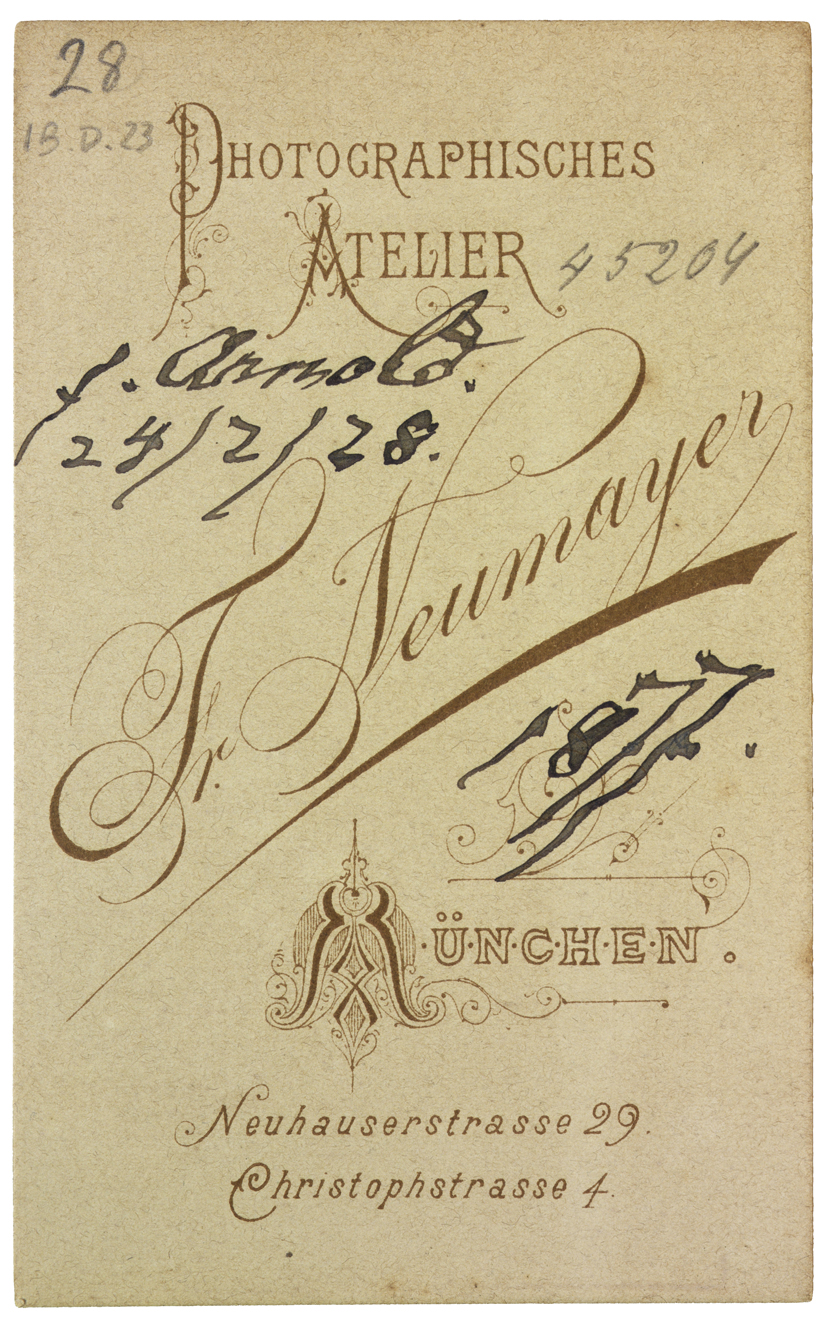 28
1B.D.23
PHOTOGRAPHISCHES
ATELIER
45204
f. Arnold.
24/2/28.
Fr. Neumayer
1877.
M·Ü·N·C·H·E·N.
Neuhauserstrasse 29.
Christophstrasse 4.